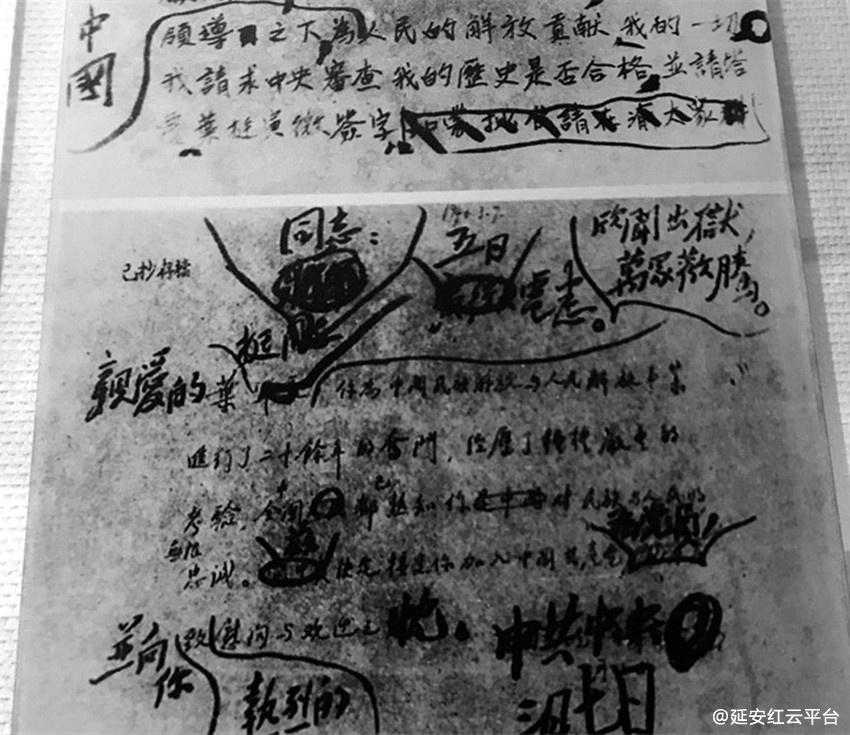 中國
領導之下為人民的解放貢献我的一切
我請求中央審查我的歷史是否合格並請答
葉挺寅微 签字
1946.3.7.
同志：
五日
电悉。
欣聞出獄，
萬眾歡騰。
已抄存檔
親愛的葉挺同志
你為中國民族解放與人民解放事業
進行了二十餘年的奮鬥，經歷了種種嚴重的
考驗，全國都已熟知你對民族與人民的
無限
忠誠。決定接受你加入中國共產黨
為黨員，
並向
你
致慰問與歡迎之忱。
熱烈的
中共中央
三月七日
@延安红云平台